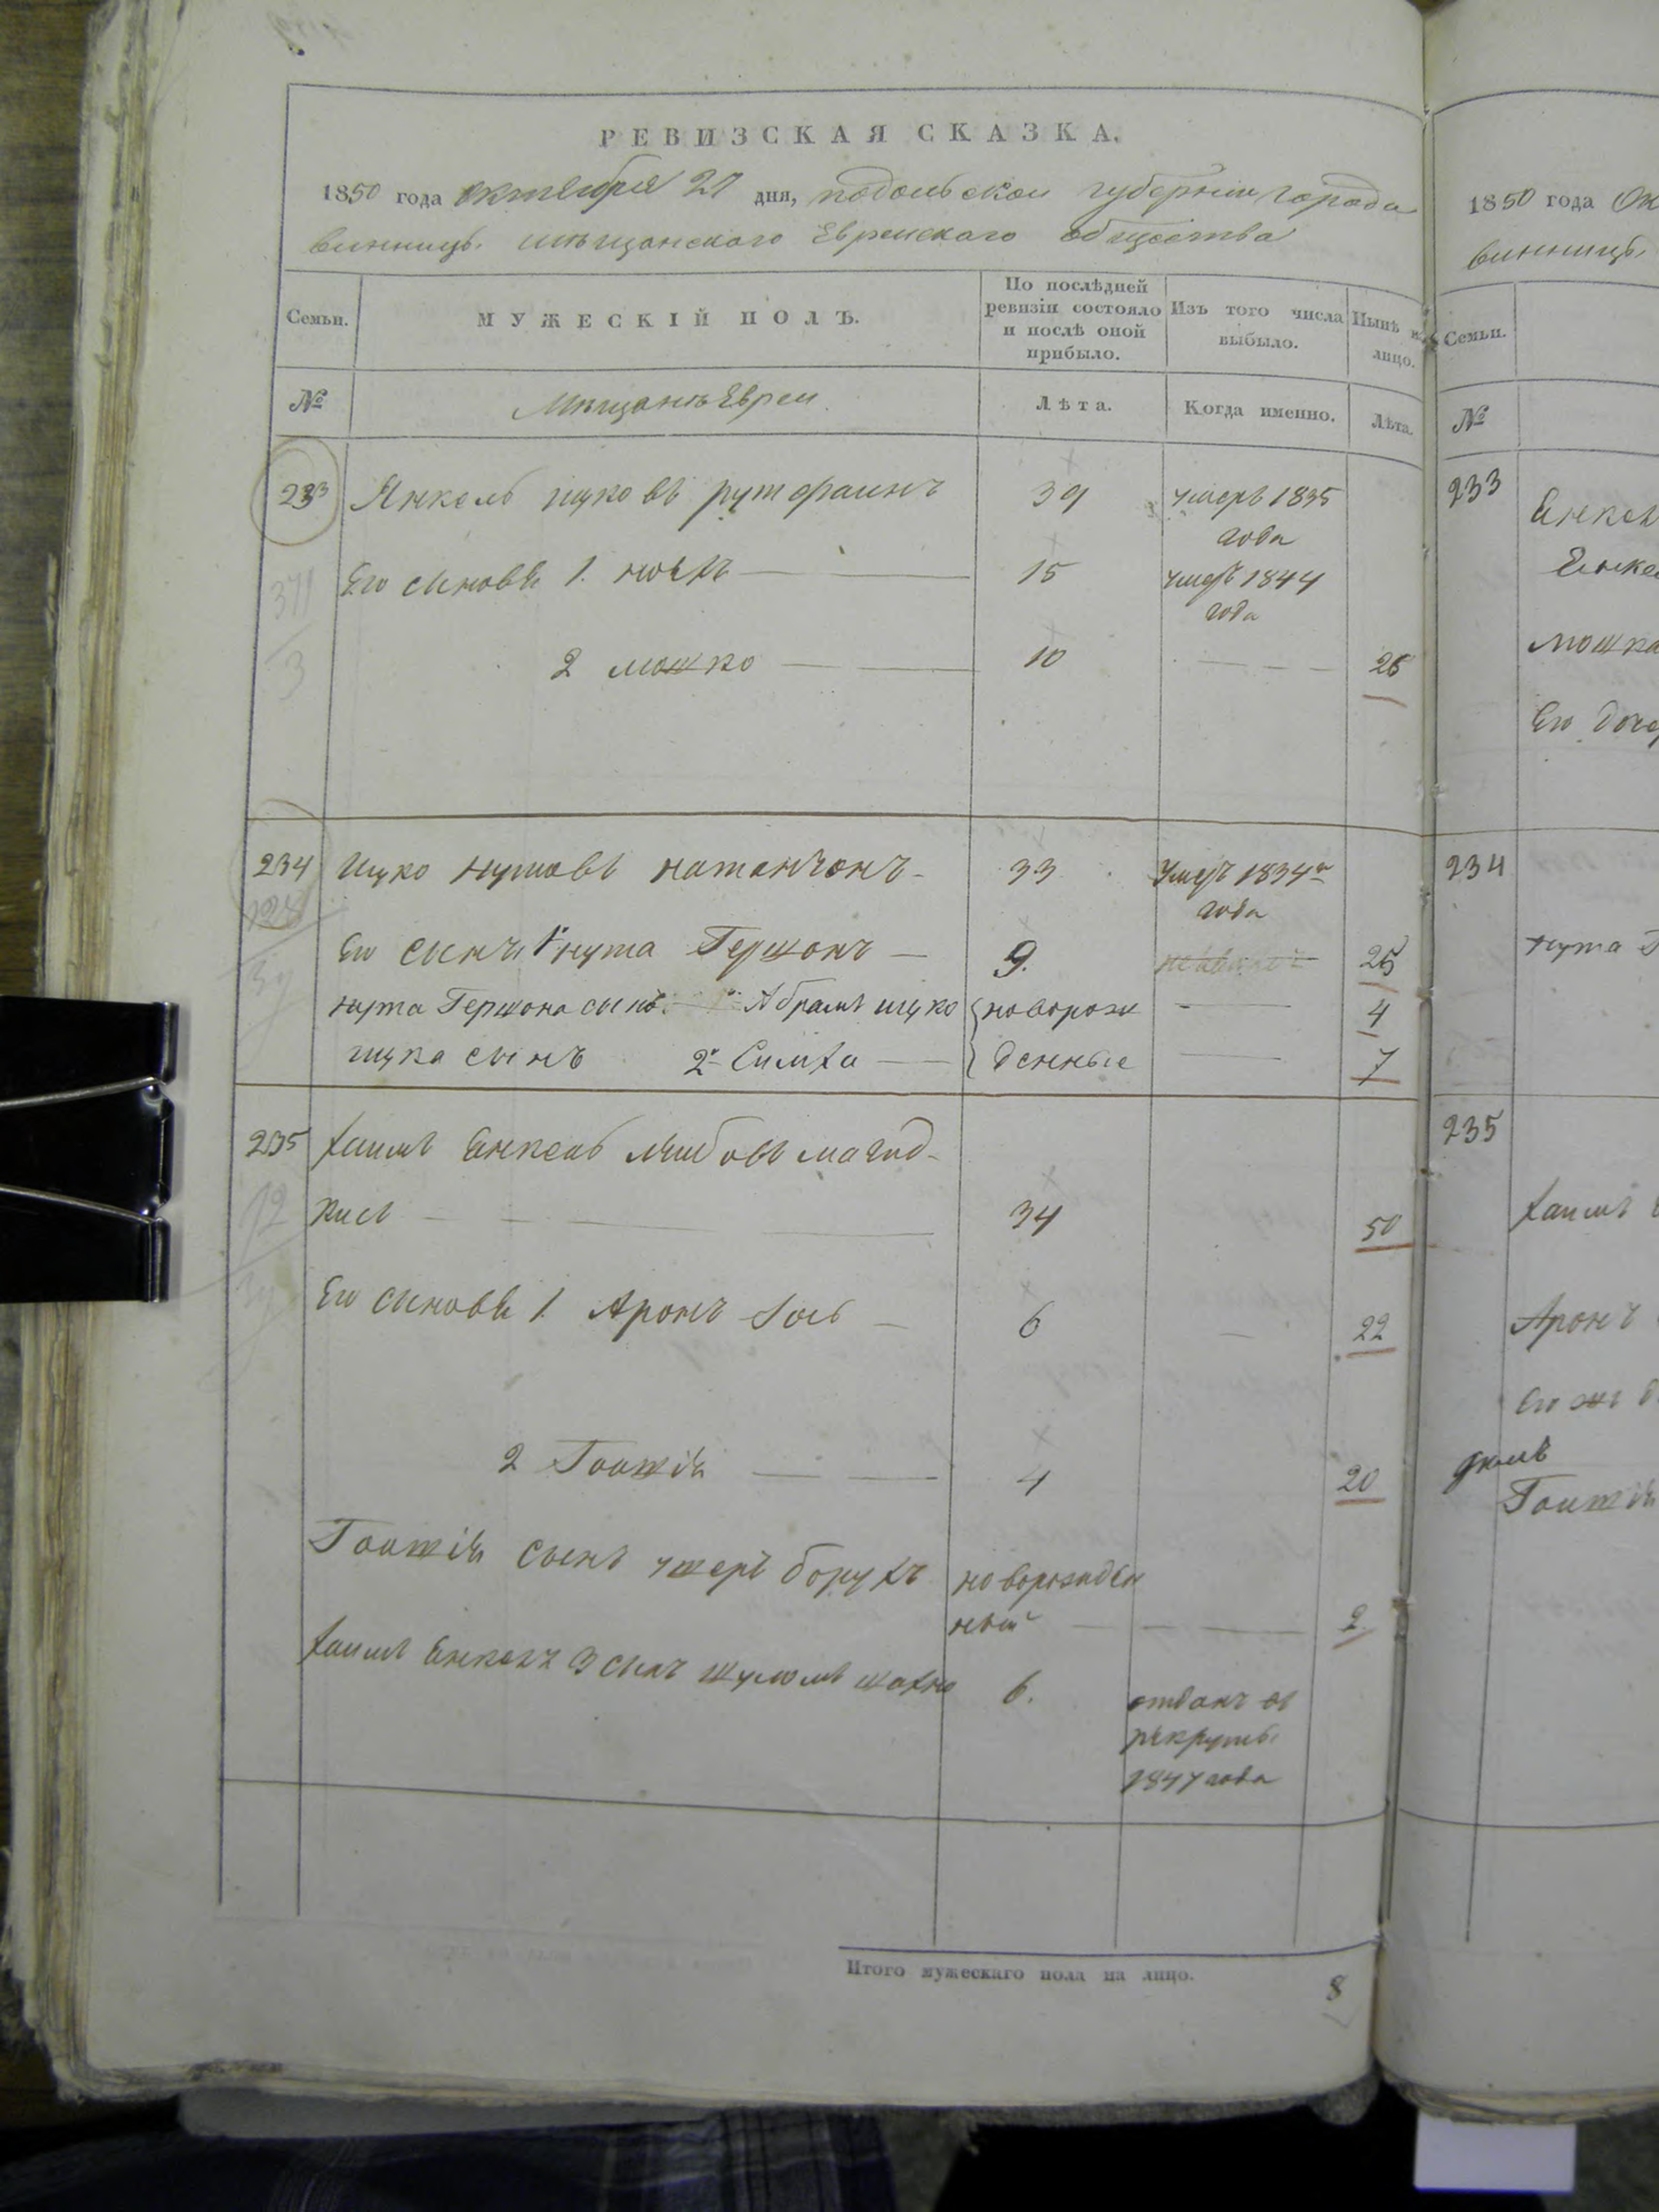 РЕВИЗСКАЯ СКАЗКА.
1850 года октября 27 дня, подольской губернии города
винницы мещанского Еврейского общества
Семьи.
МУЖЕСКІЙ ПОЛЪ.
По послѣдней ревизіи состояло и послѣ оной прибыло.
Изъ того числа выбыло.
Нынѣ на лицо.
№
Мещане Евреи
Лѣта.
Когда именно.
Лѣта.
233 Янкель ицковъ рутфаинъ 39 умеръ 1835 года
371
3
Его сыновья 1. 15 умеръ 1844 года
2 мошко 10 26
234 Ицко нутовъ натанзонъ 33 умеръ 1834 года
Его сынъ 1й нута Гершонъ 9. 25
нута Гершона сынъ Абрамъ ицко новорож 4
ицка сынъ 2й Симха денные 7
235 хаимъ Янкель лейбовъ магид-
кисъ 34 50
Его сыновья 1. Аронъ 6 22
2 4 20
сынъ борухъ новорожден
ный 2
хаимъ Янкеля 3 сынъ шулимъ шахно 6. отданъ въ
рекруты
1847 года
Итого мужескаго пола на лицо. 8
1850 года Ок
винницы
Семьи.
№
233
Янкел
Янке
мошка
Его доче
234
нута
235
хаимъ
Аронъ
Его же